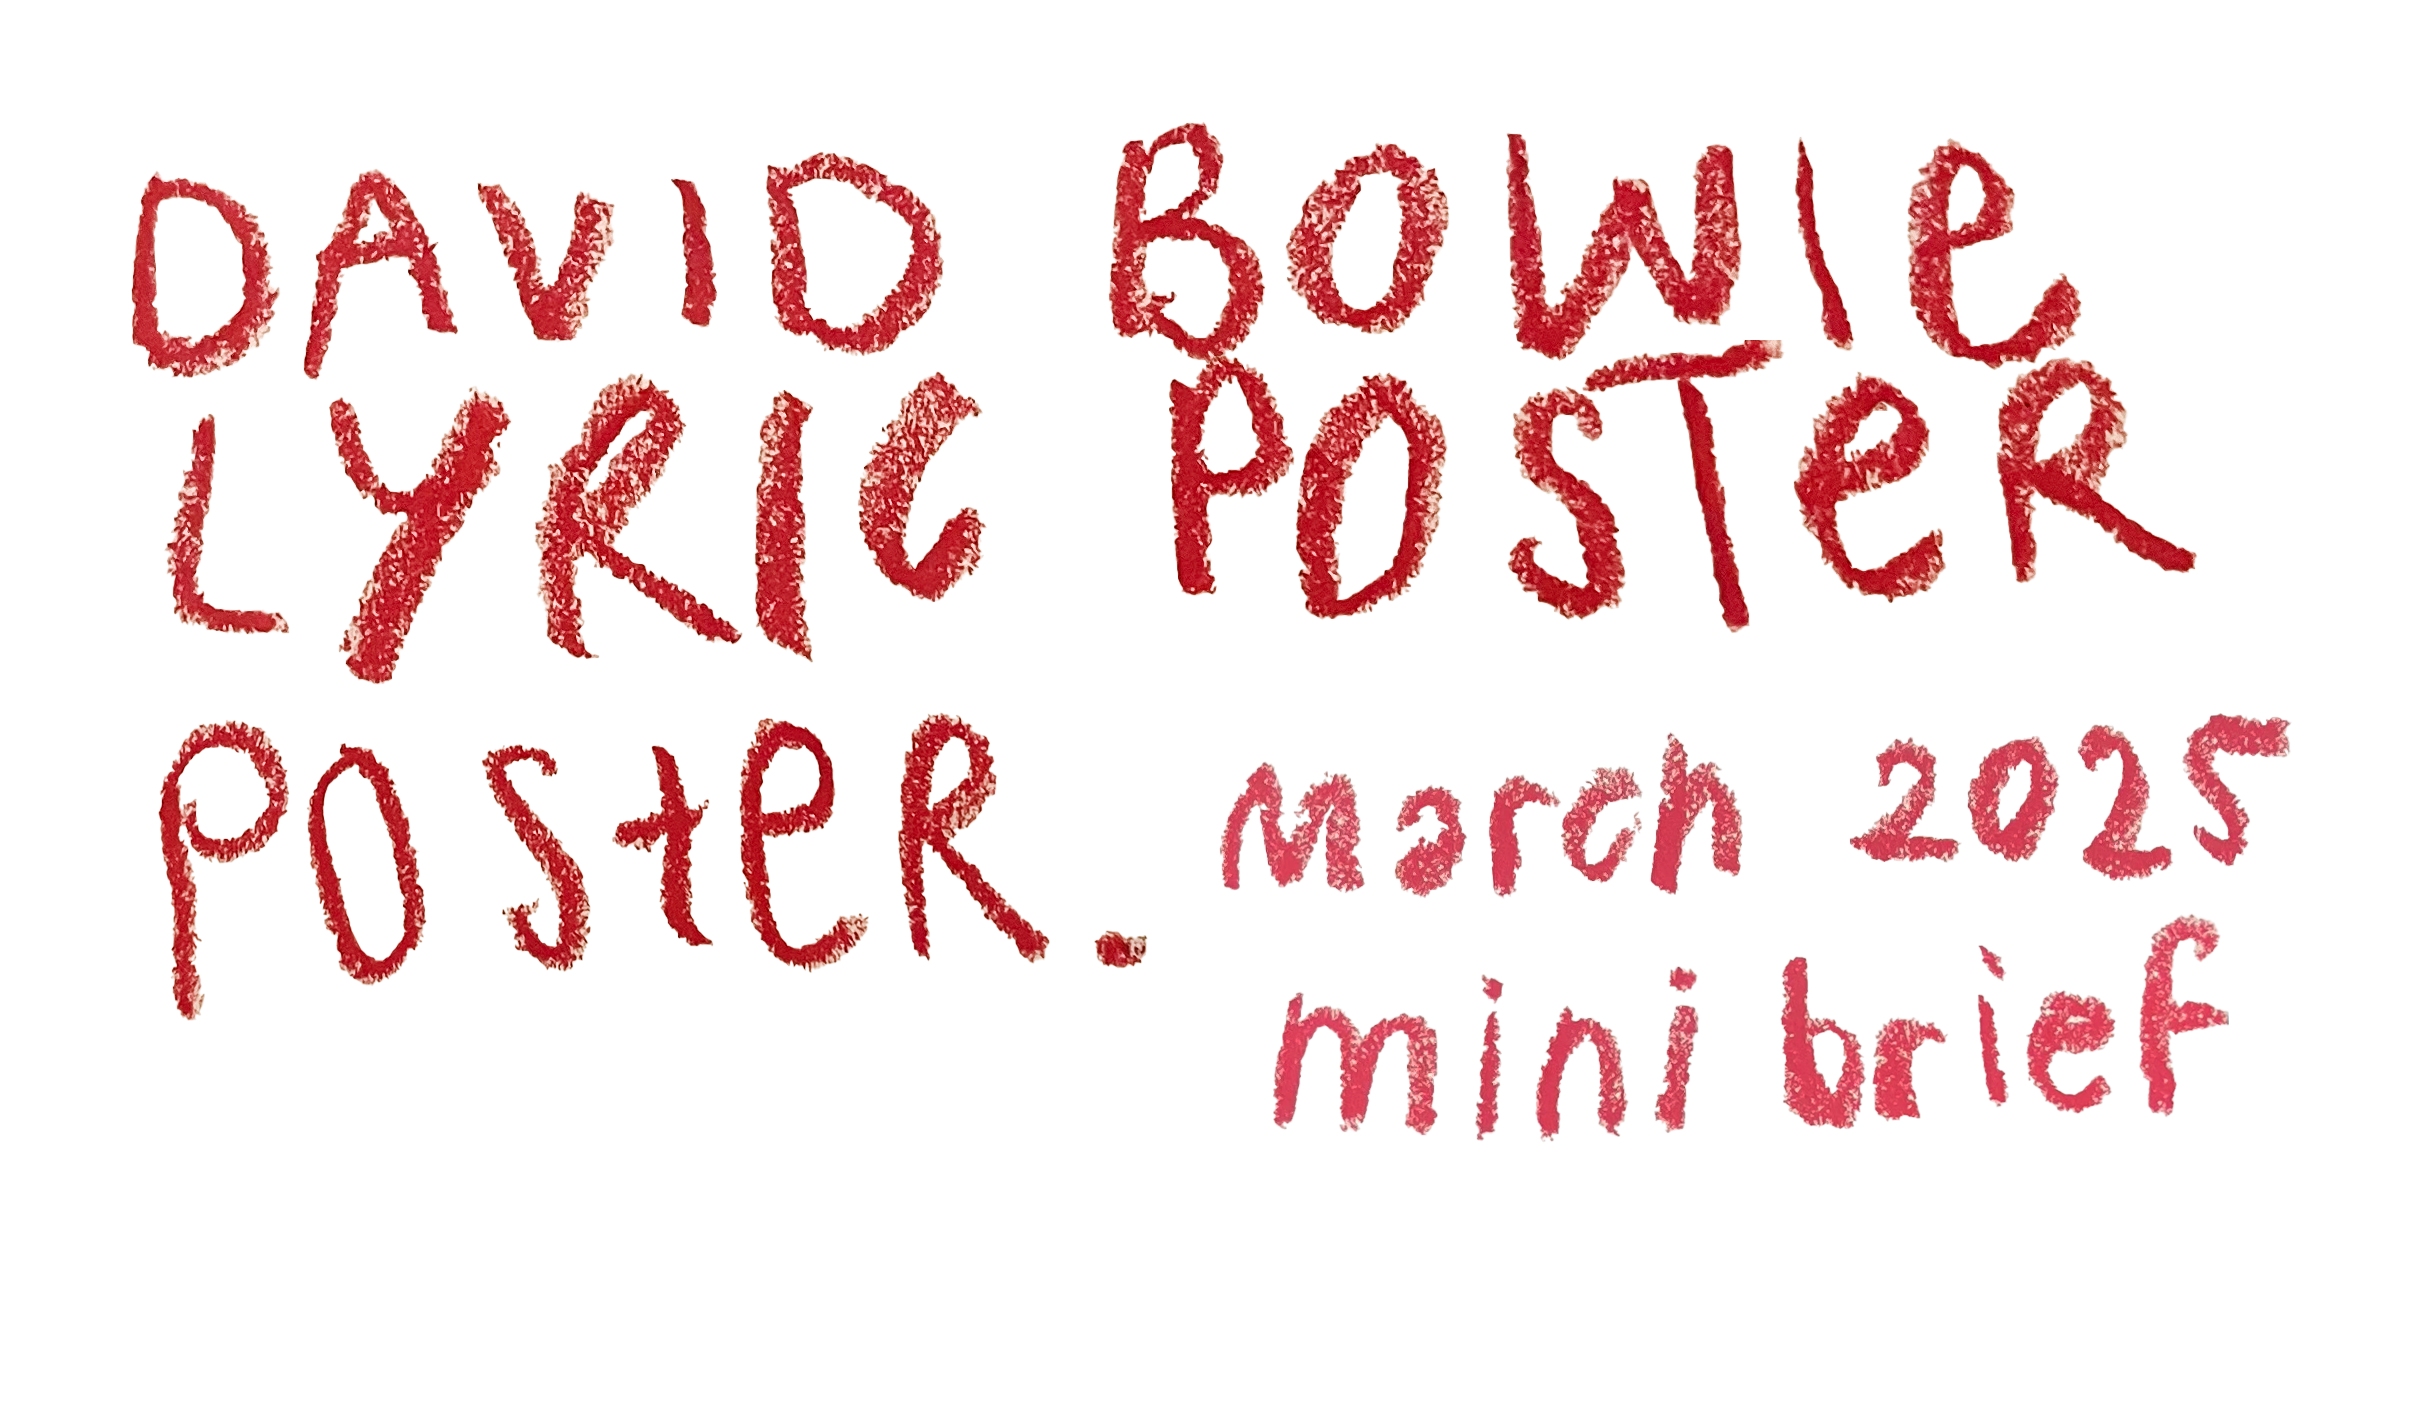 DAVID BOWIE
LYRIC POSTER
POSteR.
march 2025
mini brief